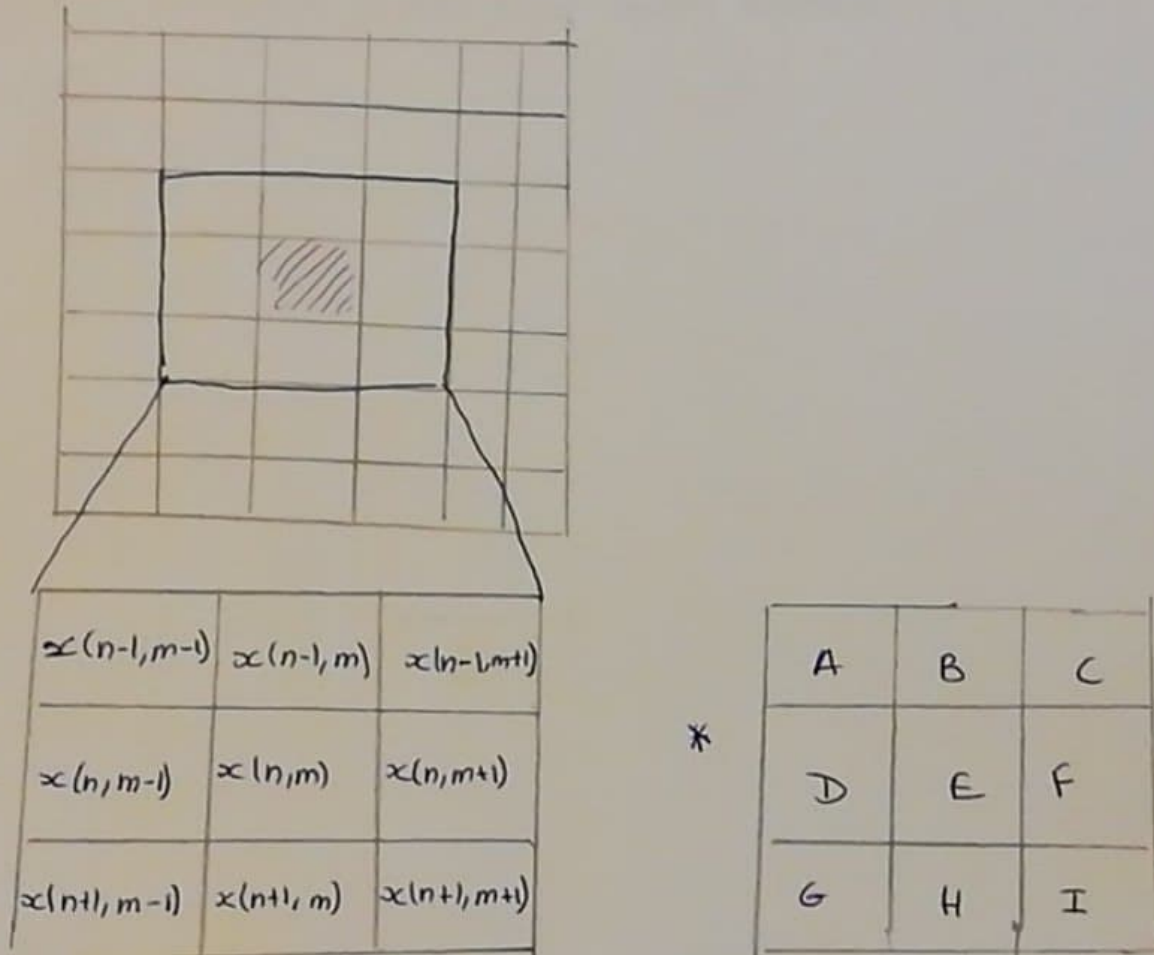 x(n-1,m-1) x(n-1,m) x(n-1,m+1)
x(n,m-1) x(n,m) x(n,m+1)
x(n+1,m-1) x(n+1,m) x(n+1,m+1)
*
A B C
D E F
G H I